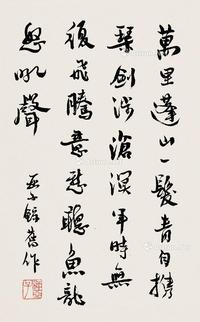 萬里蓬山一髮青自攜
琴劍涉滄溟年時無
復飛騰意愁聽魚龍
怒吼聲
亞子錄舊作